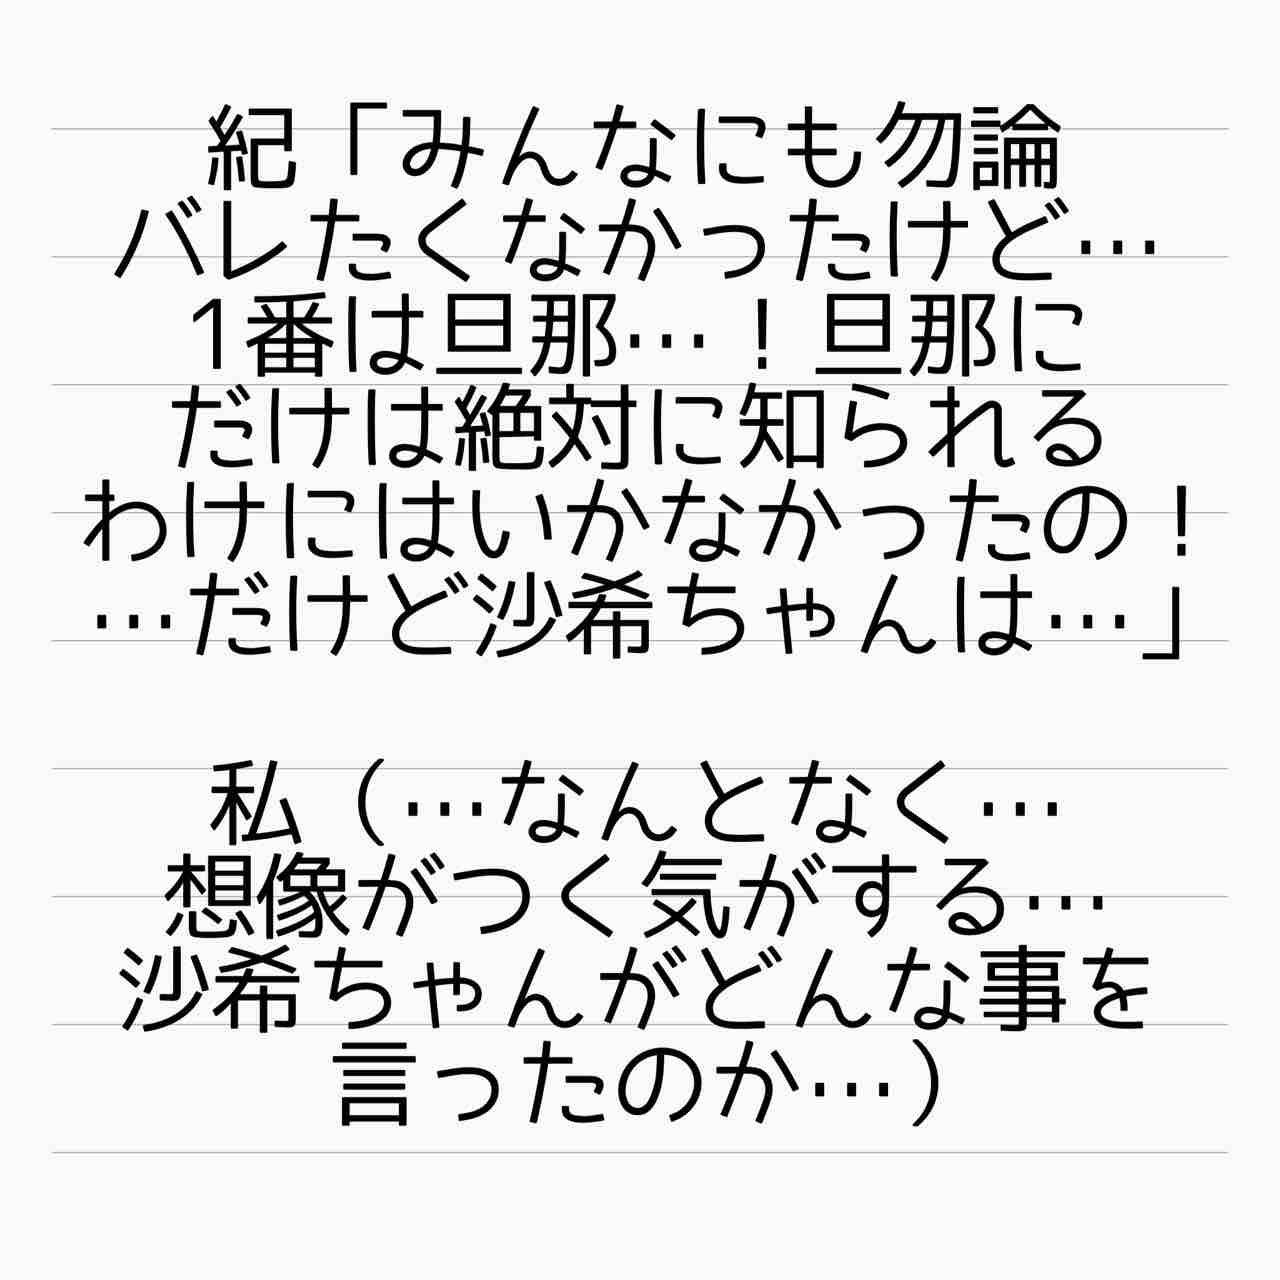 紀「みんなにも勿論
バレたくなかったけど…
1番は旦那…！旦那に
だけは絶対に知られる
わけにはいかなかったの！
…だけど沙希ちゃんは…」
私（…なんとなく…
想像がつく気がする…
沙希ちゃんがどんな事を
言ったのか…）